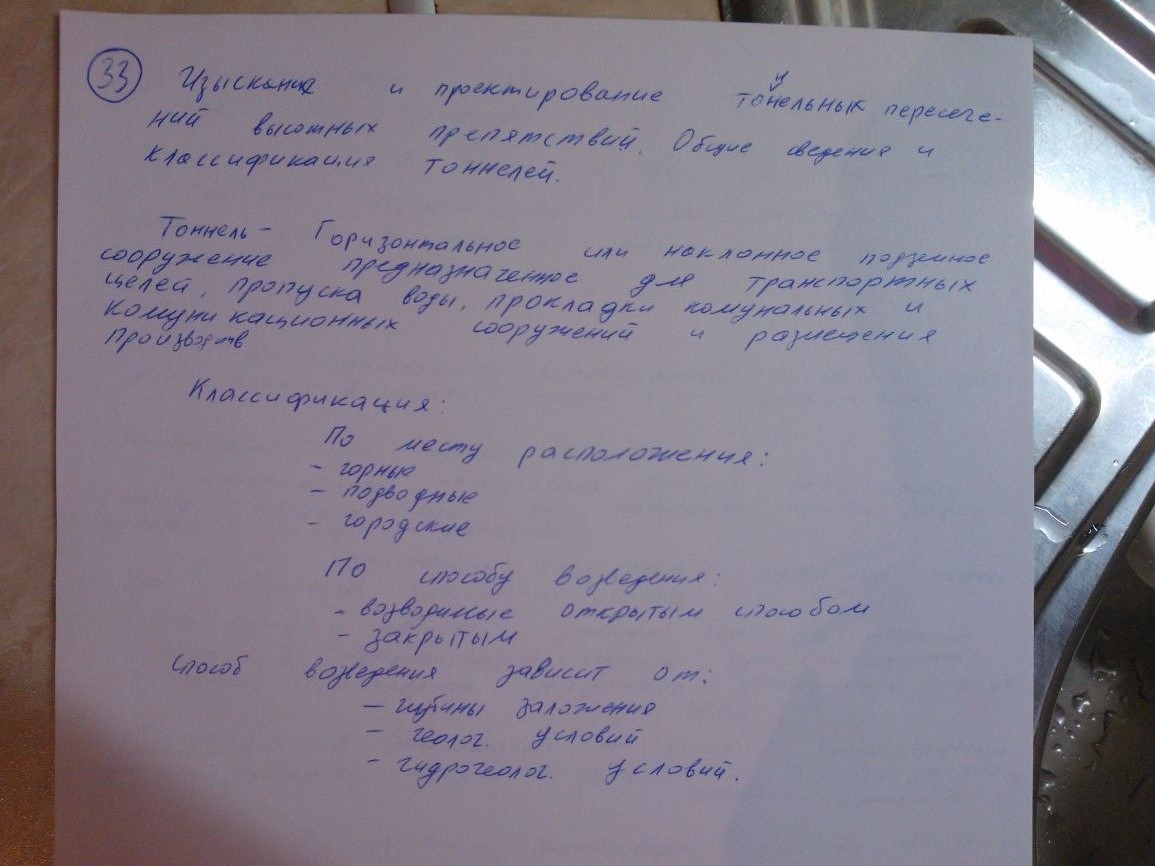 33 Изыскания и проектирование тоннельных пересече-
ний высотных препятствий. Общие сведения и
классификация тоннелей.
Тоннель - Горизонтальное или наклонное подземное
сооружение предназначенное для транспортных
целей, пропуска воды, прокладки комунальных и
комуникационных сооружений и размещения
производств
Классификация:
По месту расположения:
- горные
- подводные
- городские
По способу возведения:
- возводимые открытым способом
- закрытым
Способ возведения зависит от:
- глубины заложения
- геолог. условий
- гидрогеолог. условий.